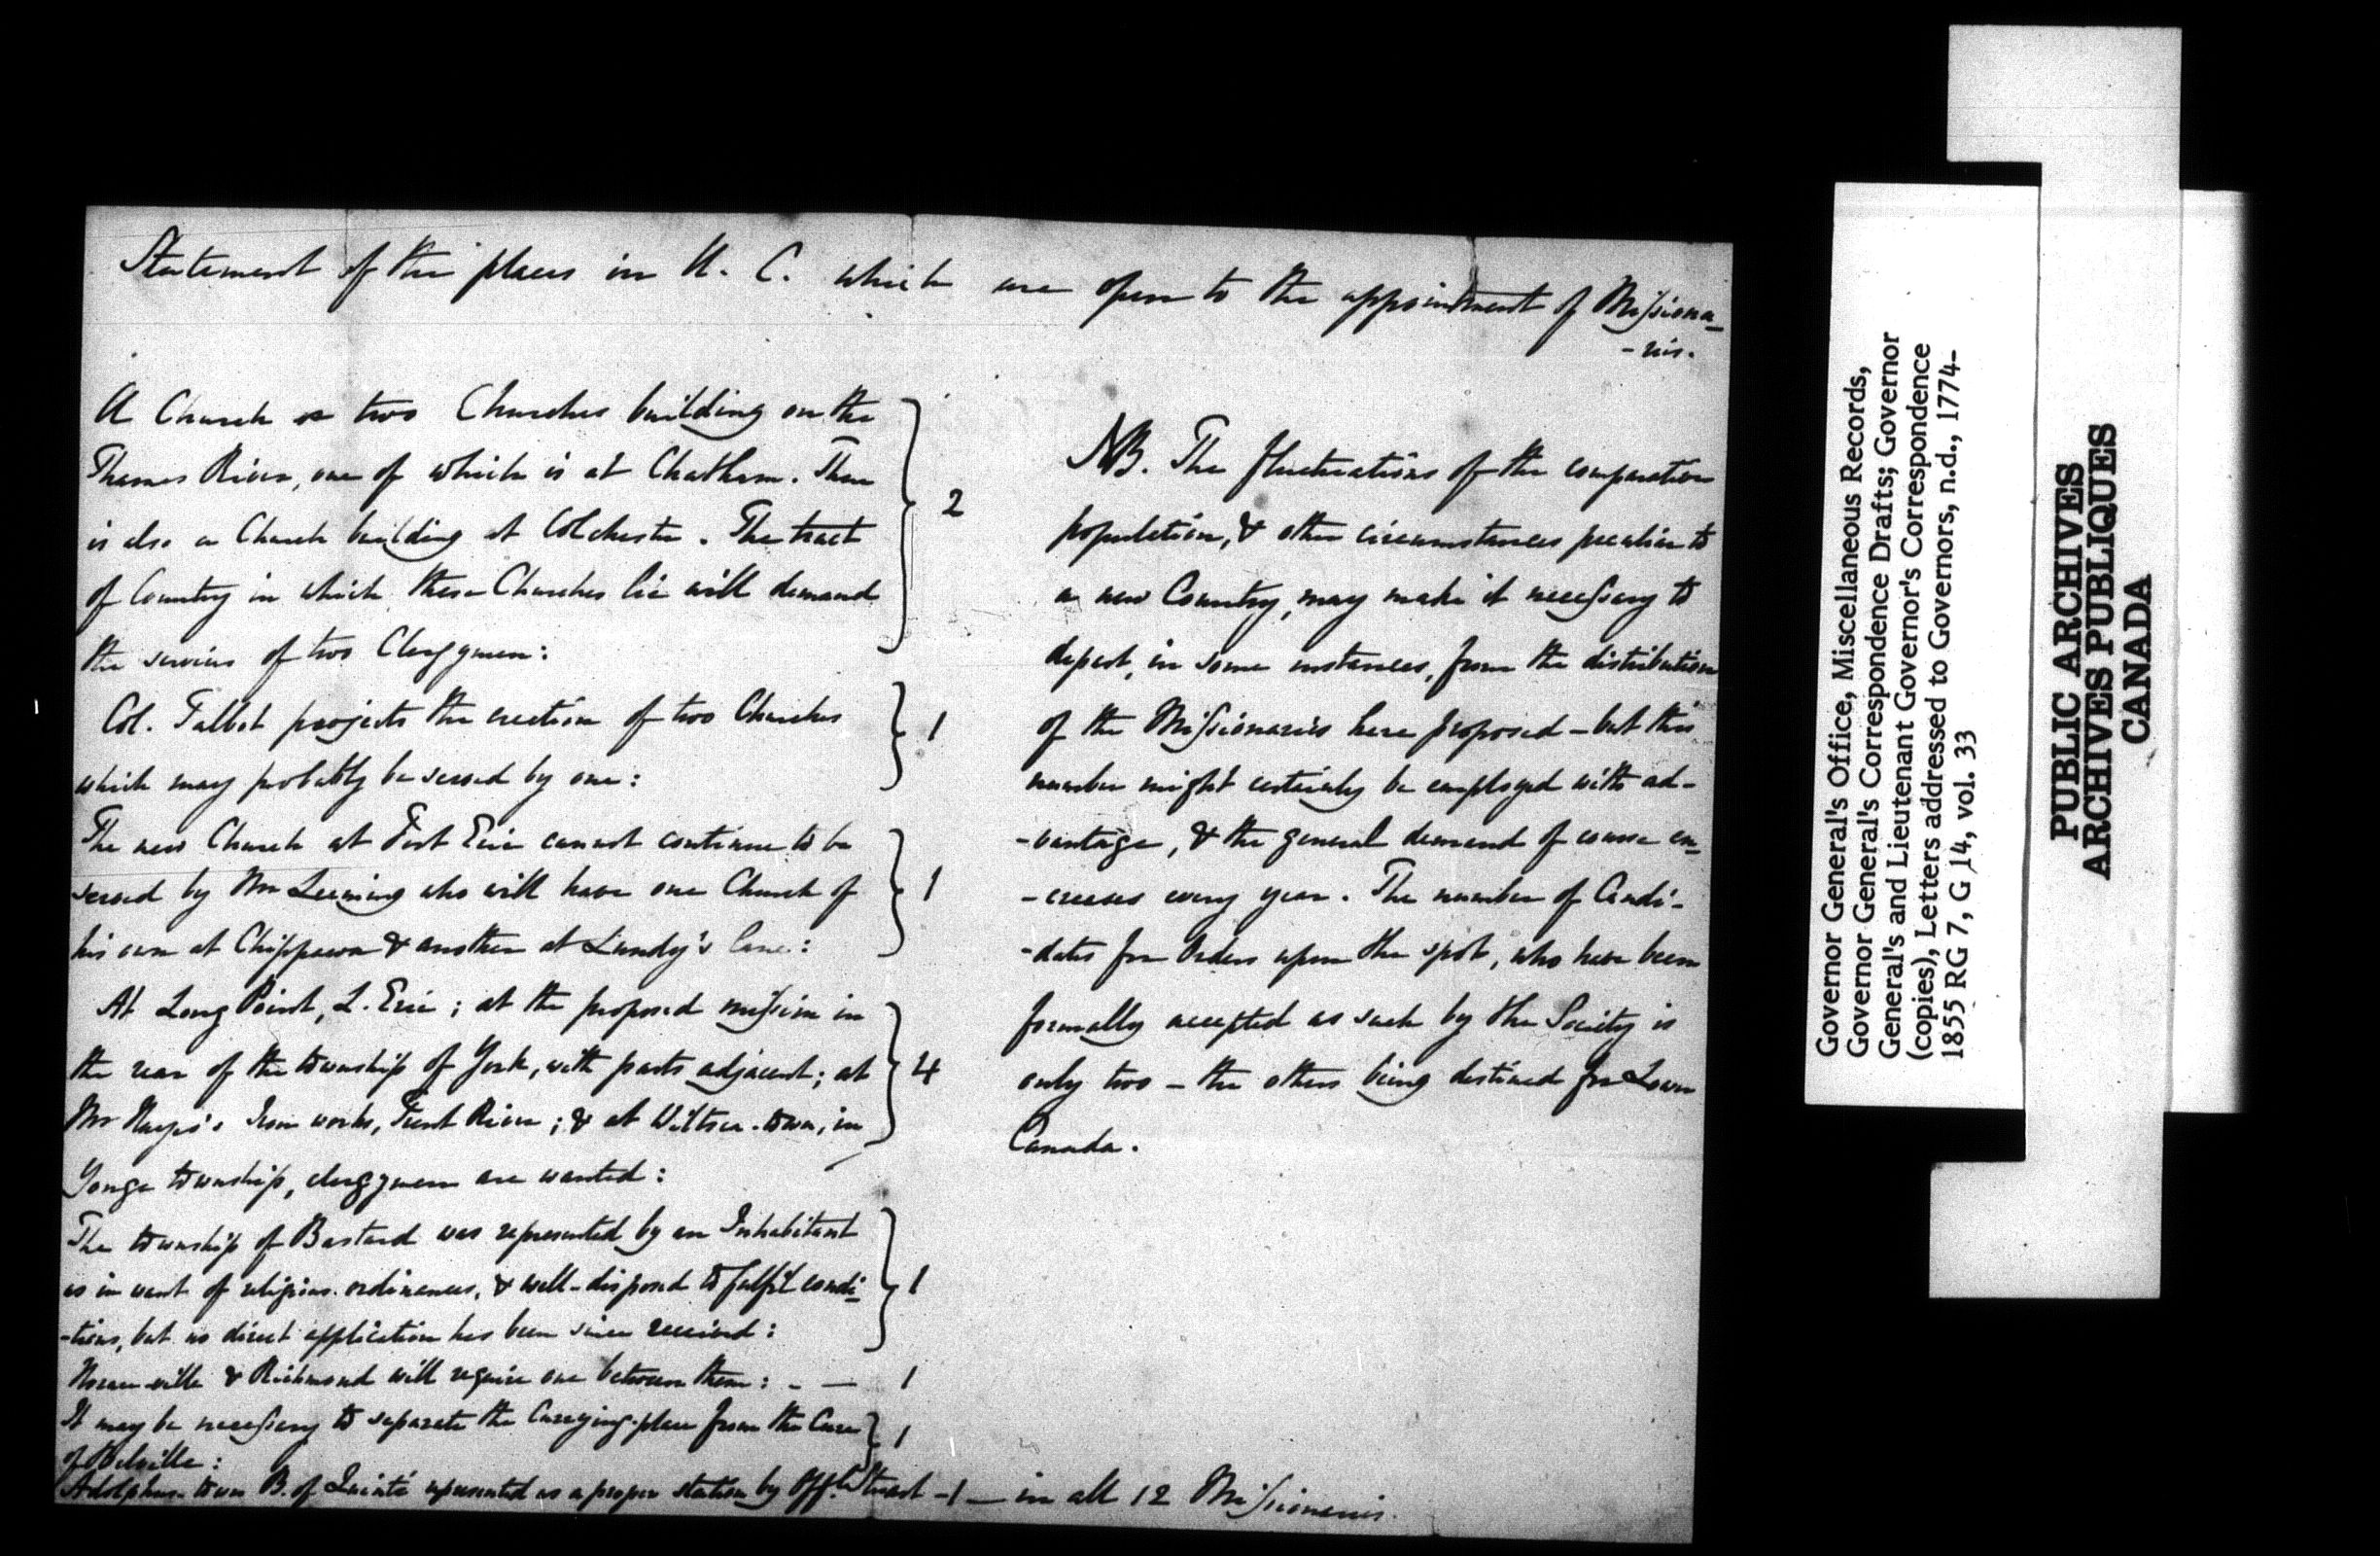 Statement of the places in U. C. which are open to the appointment of Missiona-
-ries.
A Church or two Churches building on the
Thames River, one of which is at Chatham. There
is also a Church building at Colchester. The tract
of Country in which these Churches lie will demand
the services of two Clergymen:
2
Col. Talbot projects the erection of two Churches
which may probably be served by one:
1
The new Church at Fort Erie cannot continue to be
served by Mr Leeming who will have one Church of
his own at Chippawa & another at Lundy's Lane:
1
At Long Point, L. Erie; at the proposed mission in
the rear of the township of York, with parts adjacent; at
Mr Hayes's Iron works, Trent River; & at Wiltse-town, in
Yonge township, clergymen are wanted:
4
The township of Bastard was represented by an Inhabitant
as in want of religious ordinances, & well-disposed to fulfil condi-
-tions, but no direct application has been since received:
1
& Richmond will require one between them: - — 1
It may be necessary to separate the Carrying-place from the Cure
of Belville:
1
Adolphus-town B. of Quinté represented as a proper station by Offl. Stuart - 1 — in all 12 Missionaries.
NB. The fluctuations of the comparative
population, & other circumstances peculiar to
a new Country, may make it necessary to
depart, in some instances, from the distribution
of the Missionaries here proposed - but this
number might certainly be employed with ad-
-vantage, & the general demand of course en-
-creases every year. The number of Candi-
-dates for Orders upon the spot, who have been
formally accepted as such by the Society is
only two - the others being destined for Lower
Canada.
Governor General's Office, Miscellaneous Records,
Governor General's Correspondence Drafts; Governor
General's and Lieutenant Governor's Correspondence
(copies), Letters addressed to Governors, n.d., 1774-
1855 RG 7, G 14, vol. 33
PUBLIC ARCHIVES
ARCHIVES PUBLIQUES
CANADA